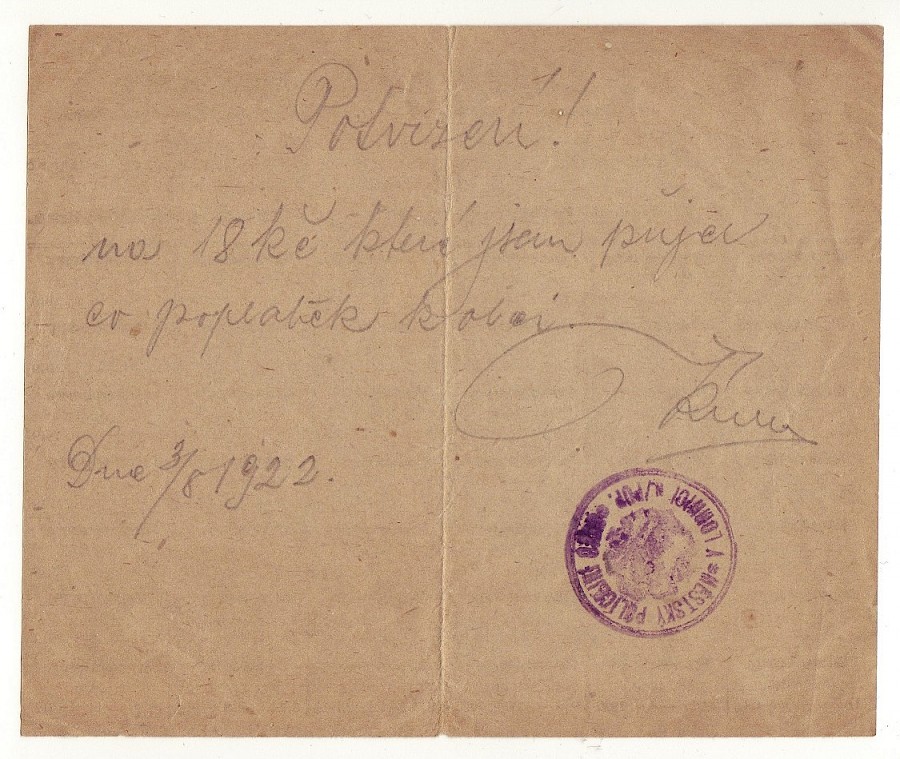 Potvrzení!
na 18 kč které jsem přijal
co poplatek k obci.
Dne 3/8 1922.
MĚSTSKÝ POLICEJNÍ ÚŘAD * V LOMNICI N/POP. *